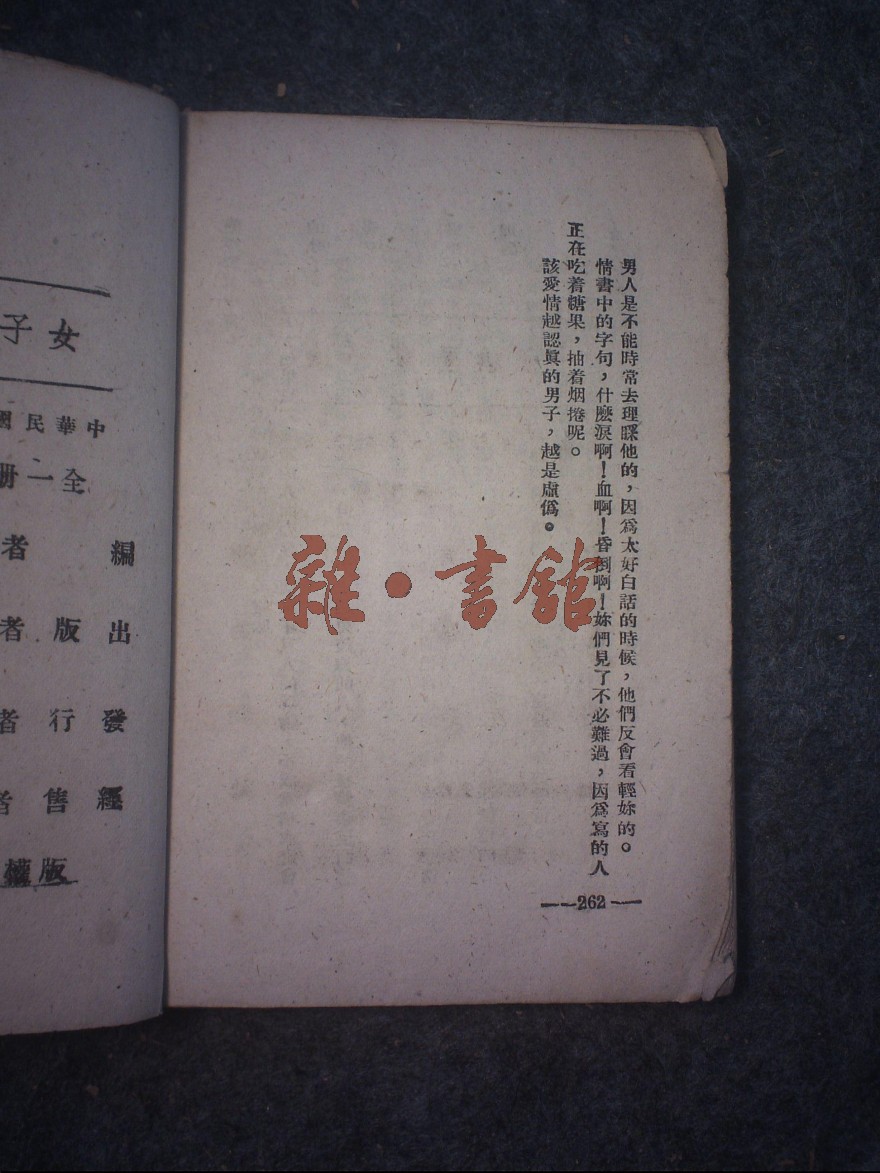 男人是不能時常去理睬他的，因爲太好白話的時候，他們反會看輕妳的。
情書中的字句，什麽淚啊！血啊！昏倒啊！妳們見了不必難過，因爲寫的人
正在吃着糖果，抽着烟捲呢。
該愛情越認眞的男子，越是虛僞。
262
雜·書館
女子
中華民國
全一册
編者
出版者
發行者
經售者
版權